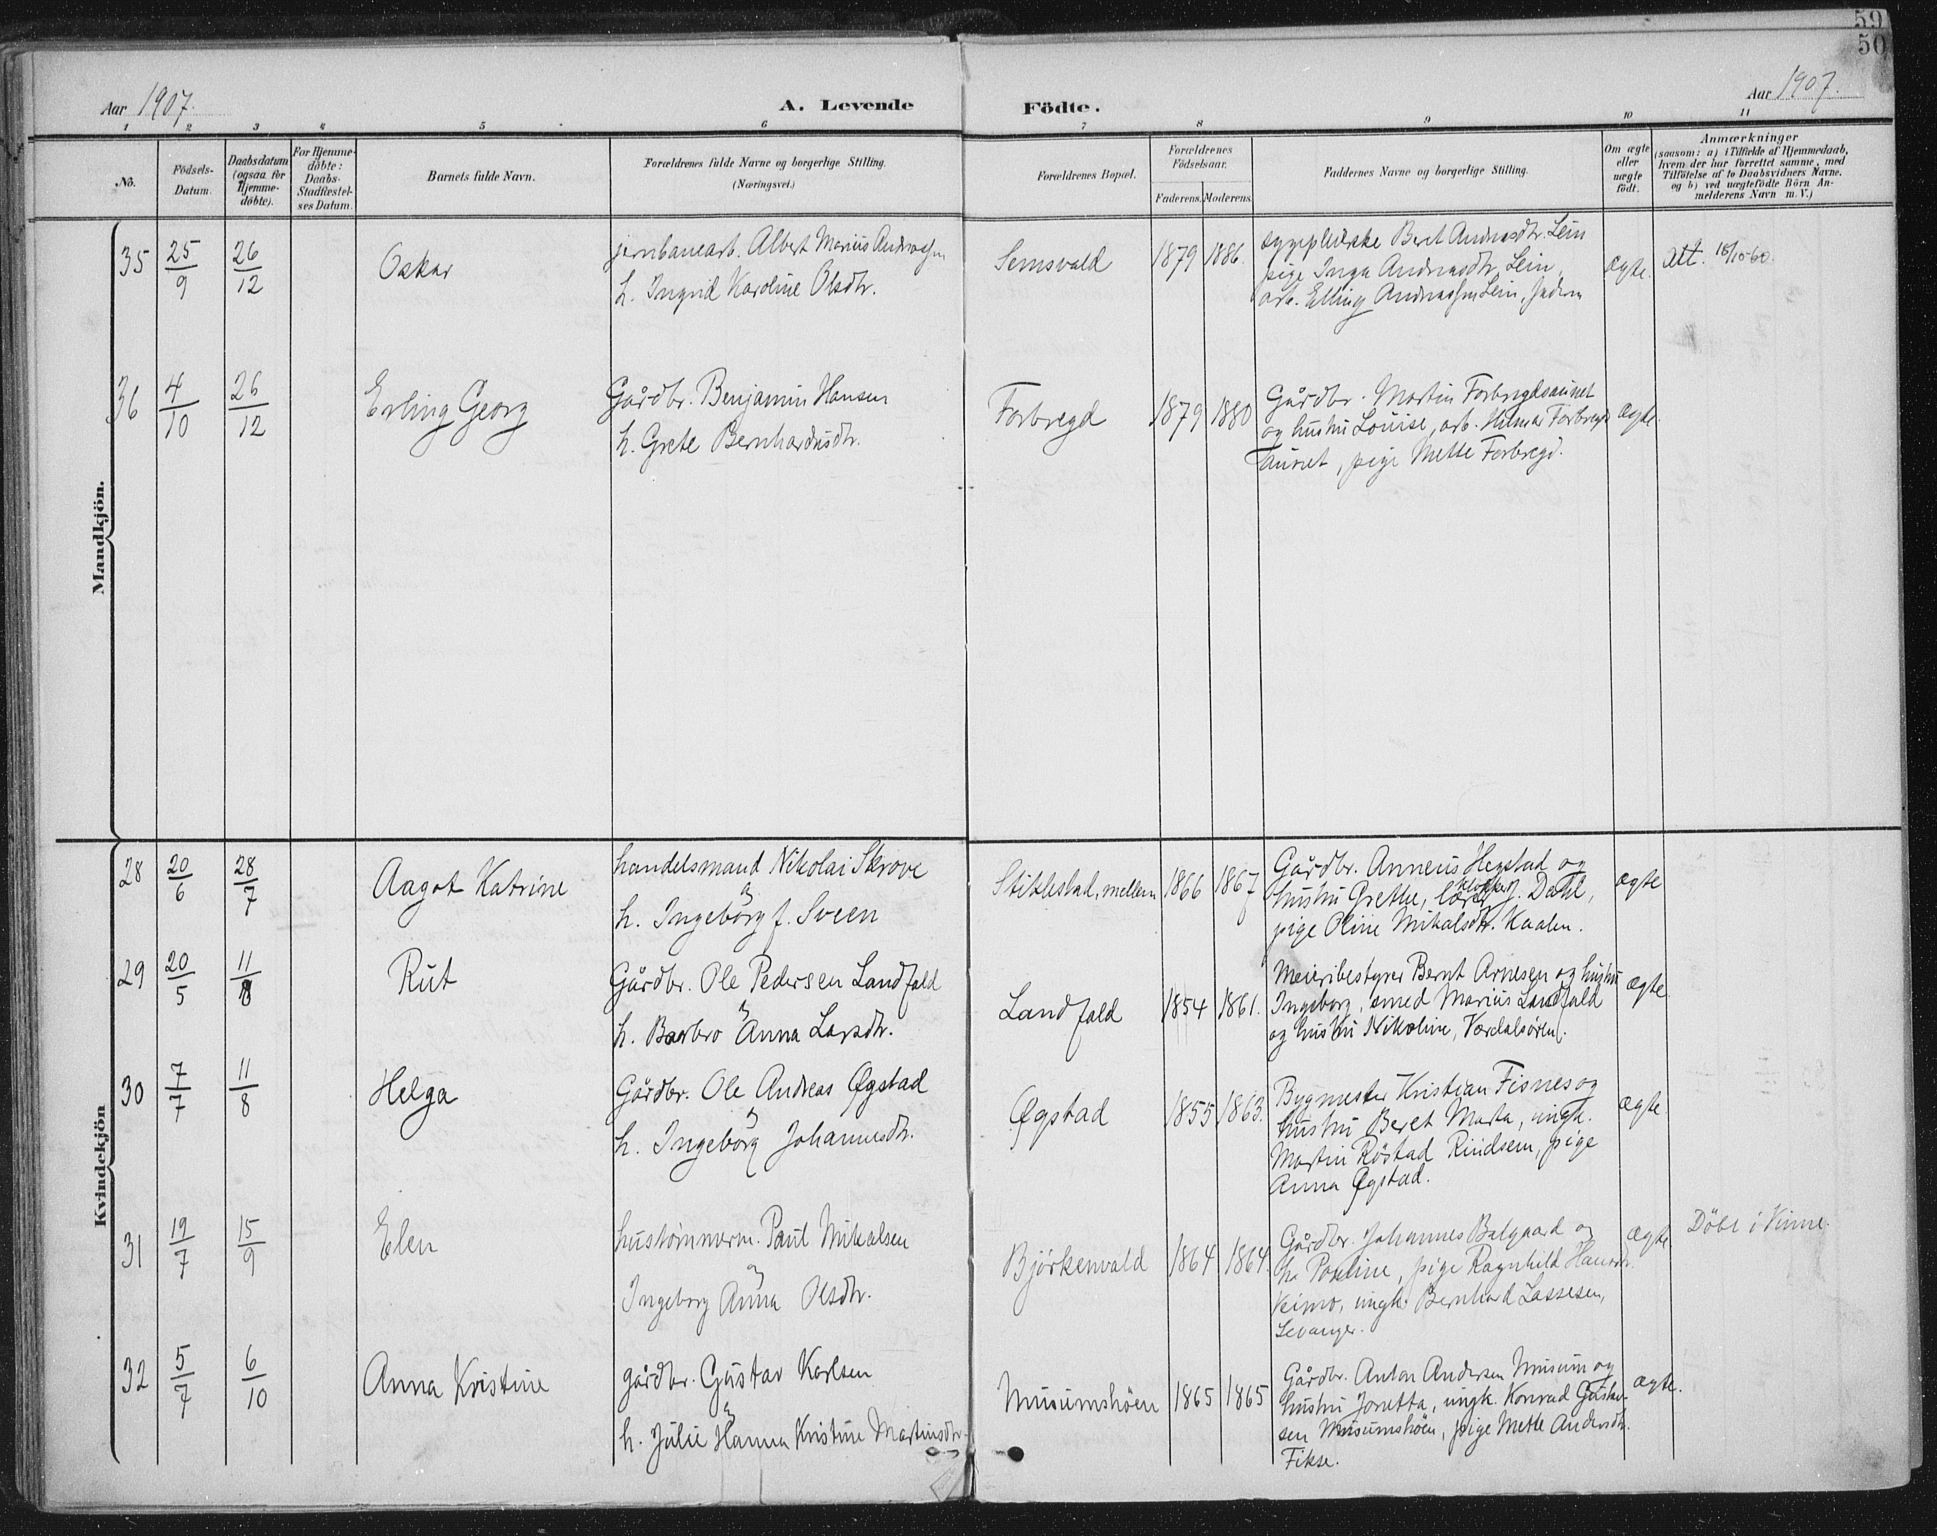 59
50
Aar 1907.
A. Levende Födte.
Aar 1907.
1 2 3 4 5 6 7 8 9 10 11
No.
Födsels-
Datum.
Daabsdatum
(ogsaa for
Hjemme-
døbte).
For Hjemme-
døbte:
Daabs-
Stadfæstel-
ses Datum.
Barnets fulde Navn.
Forældrenes fulde Navne og borgerlige Stilling.
(Næringsvei.)
Forældrenes Bopæl.
Forældrenes
Födselsaar.
Faderens. Moderens.
Faddernes Navne og borgerlige Stilling.
Om ægte
eller
uægte
født.
Anmærkninger
(saasom: a) i Tilfælde af Hjemmedaab,
hvem der har forrettet samme, med
Tilföielse af to Daabsvidners Navne.
og b) ved uægtefödte Börn An-
melderens Navn m. V.)
Mandkjön.
35 25/9 26/12 Oskar
jernbanearb. Albert Marius Andreassen
h. Ingrid Karoline Olsdtr.
Semsvald 1879 1886.
Beret Andreasdtr. Lein
pige Inga Andreasdtr. Lein,
arb. Elling Andreassen Lein,
ægte. Att. 18/10-60.
36 4/10 26/12 Erling Georg
Gårdbr. Benjamin Hansen
h. Grete Bernhardusdtr.
Forbregd 1879 1880
Gårdbr. Martin Forbregdsaunet
og hustru Louise, arb. Hilmar Forbregds
aunet, pige Mette Forbregd.
ægte.
Kvindekjön
28 20/6 28/7 Aagot Katrine
handelsmand Nikolai Skrove
h. Ingeborg f. Sveen
Stiklestad, mellem 1866 1867
Gårdbr. Anneus Hegstad og
hustru Grethe, lærer J. Dahl,
pige Oline Mikalsdtr. Kaalen.
ægte
29 20/5 11/8 Rut
Gårdbr. Ole Pedersen Landfald
h. Barbro Anna Larsdtr.
Landfald 1854 1861.
Meieribestyrer Bernt Arnesen og hustru
Ingeborg, smed Marius Landfald
og hustru Nikoline, Værdalsøren.
ægte
30 7/7 11/8 Helga
Gårdbr. Ole Andreas Øgstad
h. Ingeborg Johannesdtr.
Øgstad 1855 1863.
Bygmester Kristian Fisnes og
hustru Beret Marta, ungk.
Martin Røstad Rindsem, pige
Anna Øgstad.
ægte.
31 19/7 15/9 Elen
hustømmerm. Paul Mikalsen
Ingeborg Anna Olsdtr.
Bjørkenvald 1864 1864.
Gårdbr. Johannes Balgaard og
h. Pauline, pige Ragnhild Hansdtr.
Keimo, ungk. Bernhard Lassesen,
Levanger.
ægte. Døbt i Vinne.
32 5/7 6/10 Anna Kristine
gårdbr. Gustav Karlsen
h. Julie Hanna Kristine Martinsdtr.
Musumshöen 1865 1865
Gårdbr. Anton Andersen Musum og
hustru Jonetta, ungk. Konrad Gustav-
sen Musumshöen, pige Mette Andersdtr.
Fikse.
ægte.